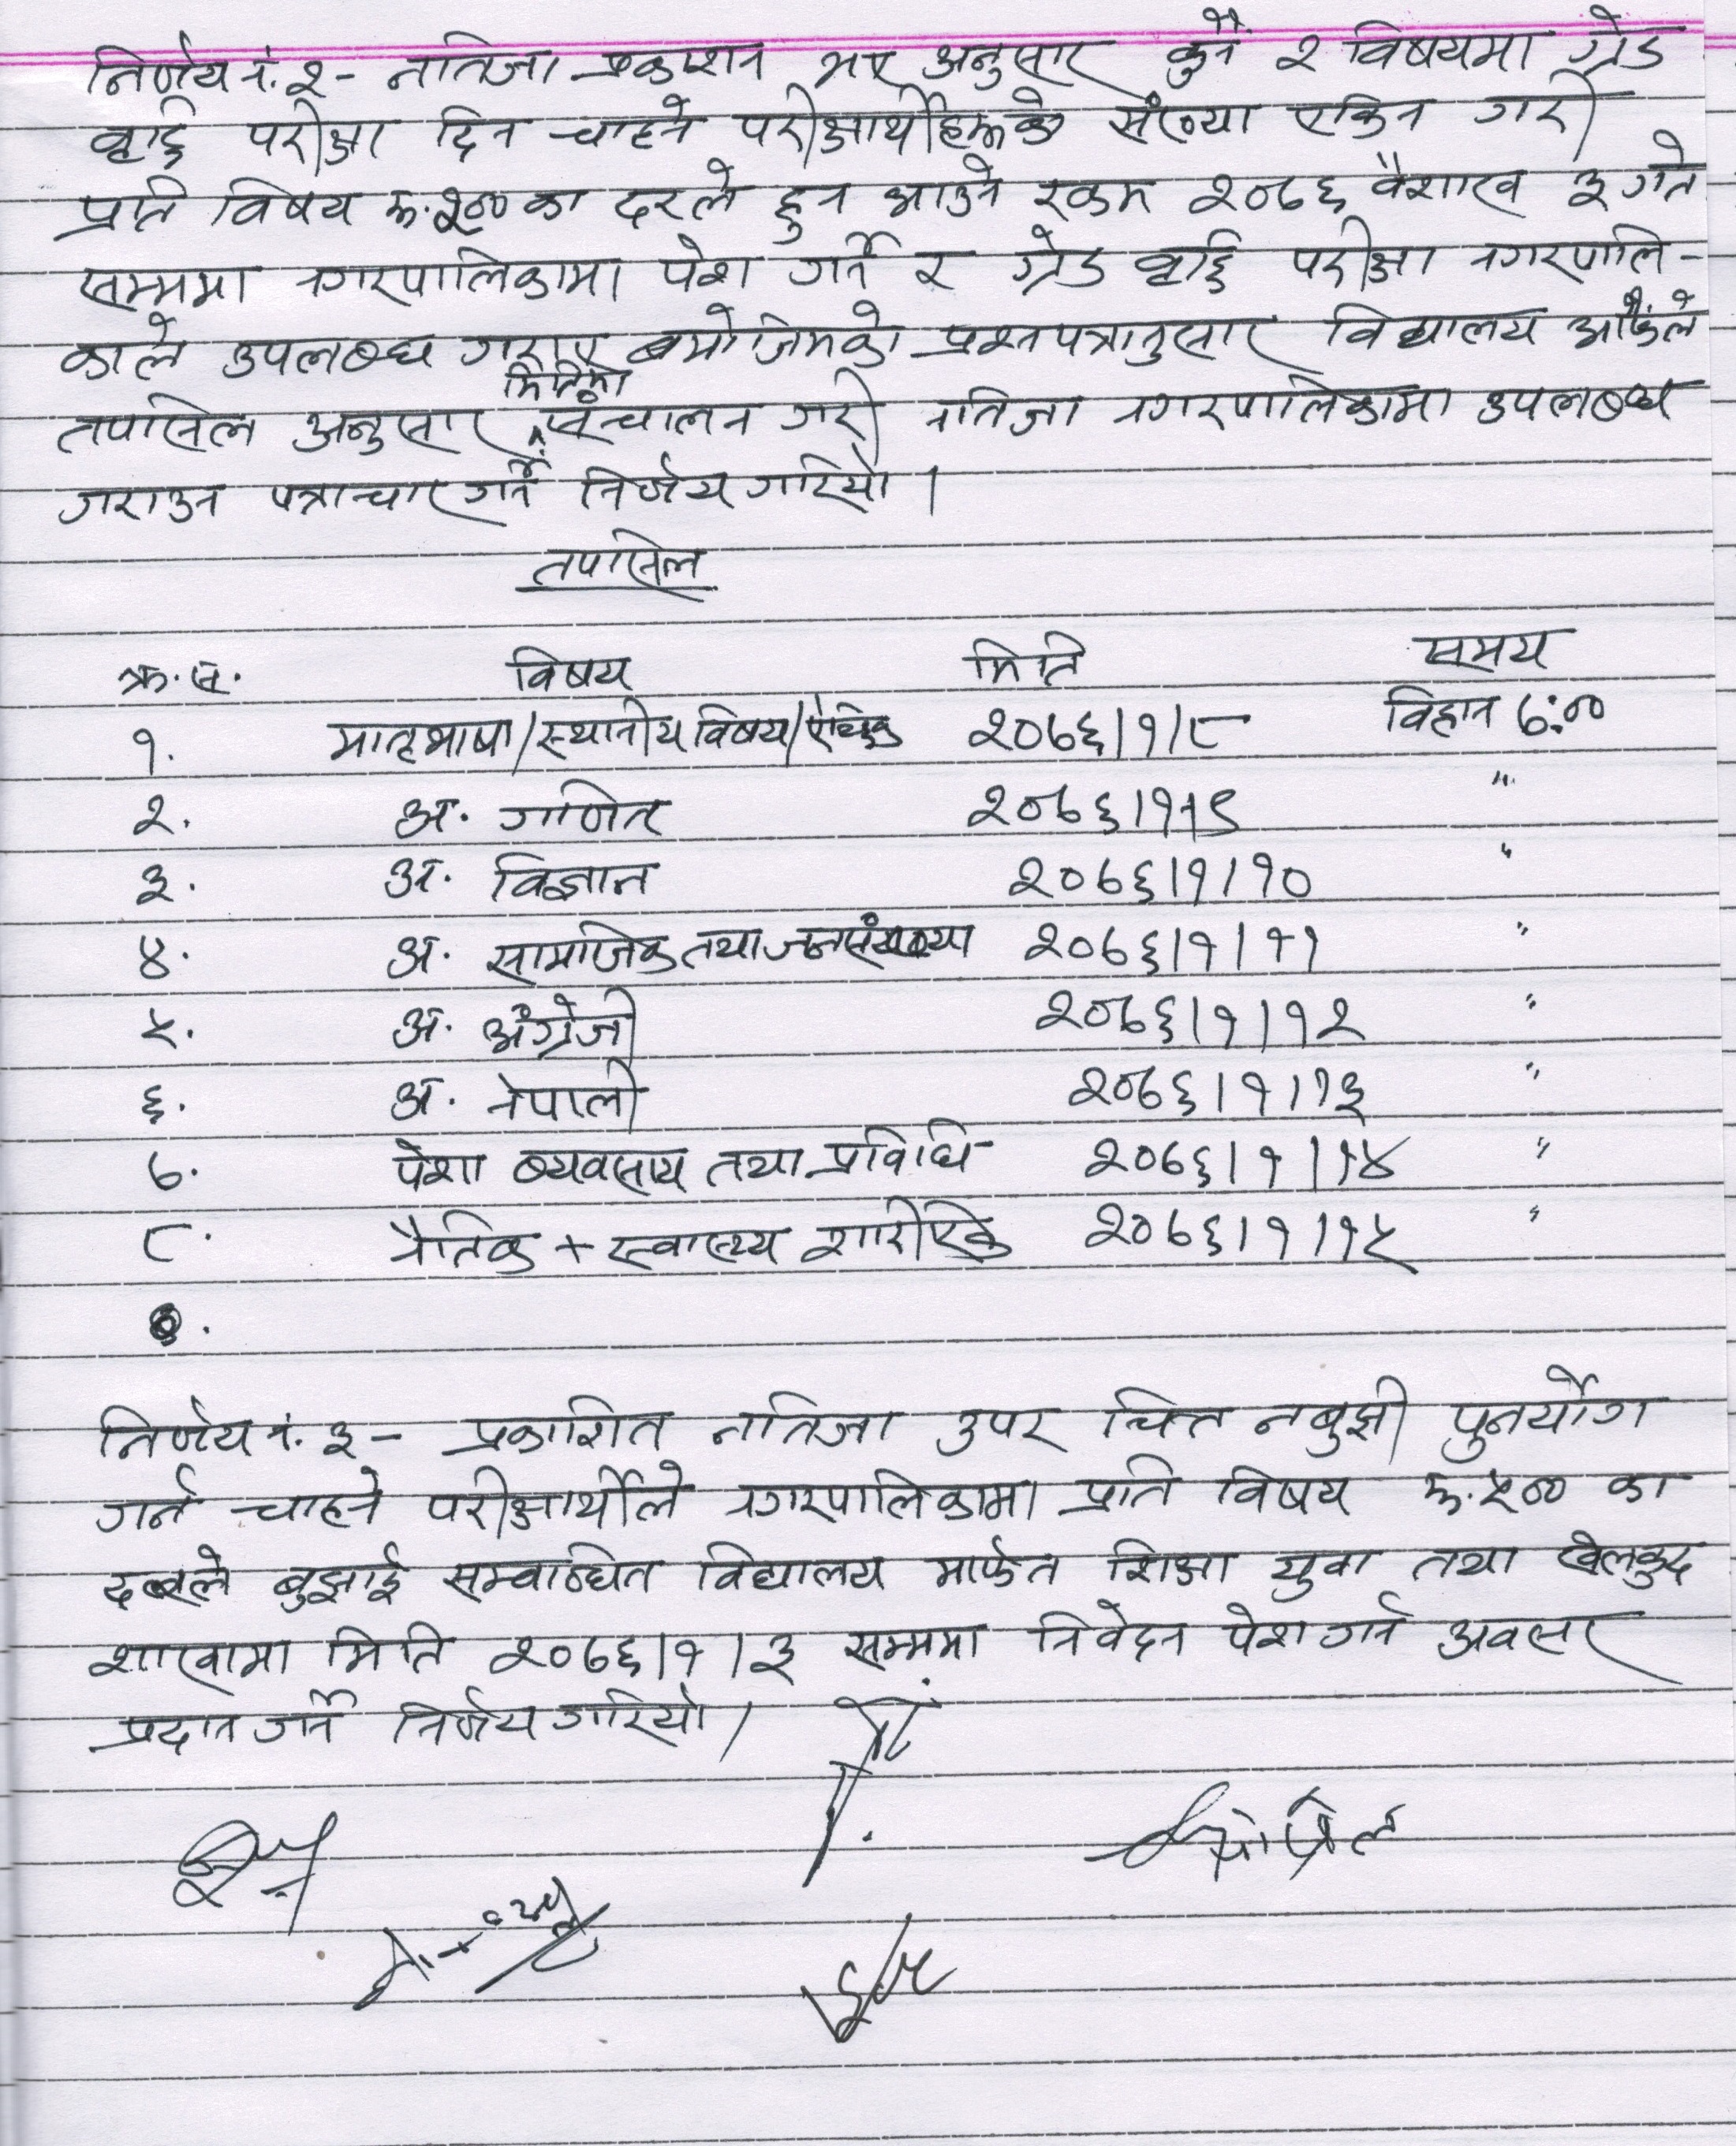 निर्णय नं. २- नतिजा प्रकाशन भए अनुसार कुनै २ विषयमा ग्रेड
वृद्दि परीक्षा दिन चाहने परीक्षार्थीहरूको संख्या एकिन गरी
प्रति विषय रू.२०० का दरले हुन आउने रकम २०७६ वैशाख ३ गते
सम्ममा नगरपालिकामा पेश गर्ने र ग्रेड वृद्दि परीक्षा नगरपालि-
काले उपलब्ध गराए बमोजिमको प्रश्नपत्रानुसार विद्यालय आफैंले
तपसिल अनुसार मितिमा संचालन गरी नतिजा नगरपालिकामा उपलब्ध
गराउन पत्राचार गर्ने निर्णय गरियो ।
तपसिल
क्र.स. विषय मिति समय
१. मातृभाषा/स्थानीय विषय/ऐच्छिक २०७६।१।८ विहान ७:००
२. अ. गणित २०७६।१।९ "
३. अ. विज्ञान २०७६।१।१० "
४. अ. सामाजिक तथा जनसंख्या २०७६।१।११ "
५. अ. अंग्रेजी २०७६।१।१२ "
६. अ. नेपाली २०७६।१।१३ "
७. पेशा व्यवसाय तथा प्रविधि २०७६।१।१४ "
८. नैतिक + स्वास्थ्य शारीरिक २०७६।१।१५ "
निर्णय नं. ३- प्रकाशित नतिजा उपर चित्त नबुझी पुनर्योग
गर्न चाहने परीक्षार्थीले नगरपालिकामा प्रति विषय रू.५०० का
दरले बुझाई सम्वन्धित विद्यालय मार्फत शिक्षा युवा तथा खेलकुद
शाखामा मिति २०७६।१।३ सम्ममा निवेदन पेश गर्न अवसर
प्रदान गर्ने निर्णय गरियो।